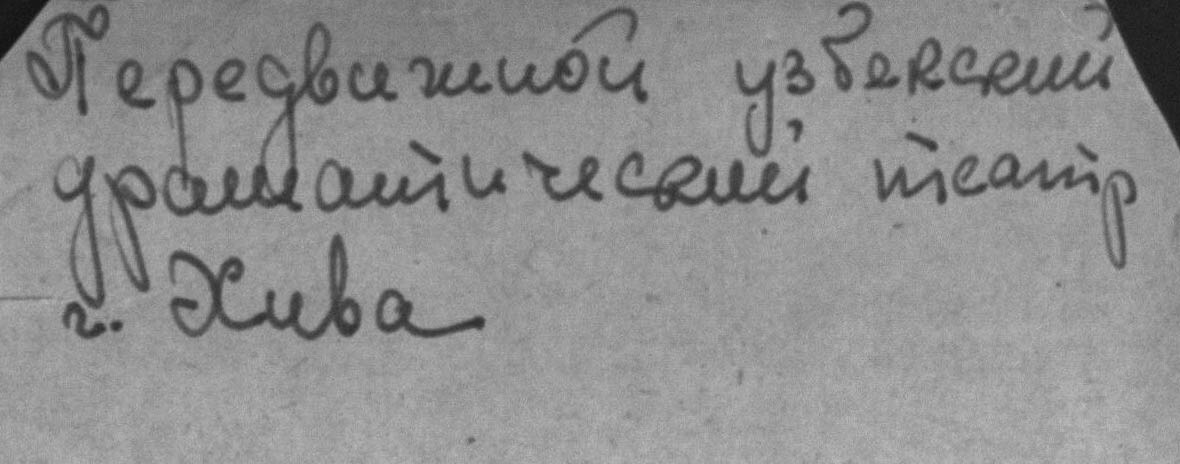 Передвижной узбекский
драматический театр
г. Хива